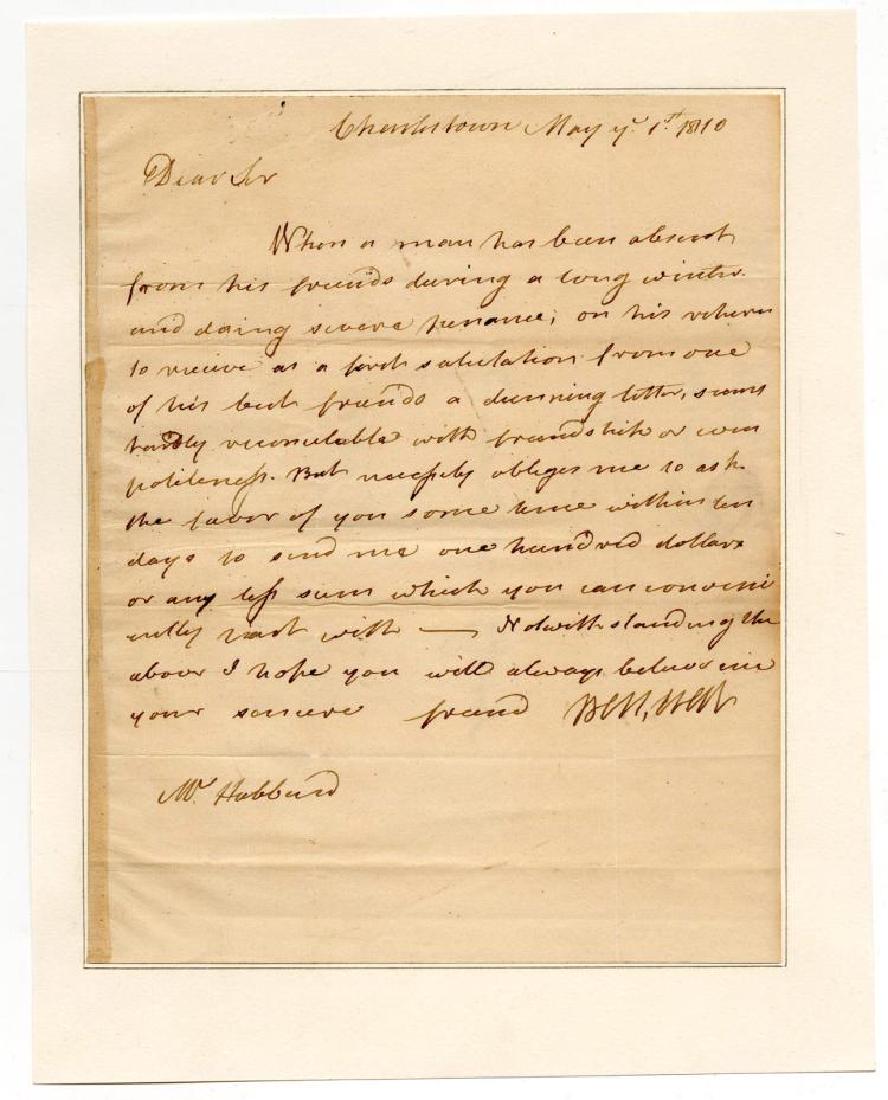 Charlestown May y.e 1.st 1810
Dear Sir
When a man has been absent
from his friends during a long winter
and doing severe penance; on his return
to receive as a first salutation from one
of his best friends a dunning letter, seems
hardly reconcileable with friendship or even
politeness. But necessity obliges me to ask
the favor of you some time within ten
days to send me one hundred dollars
or any less sum which you can conveni
ently part with — Notwithstanding the
above I hope you will always believe me
your sincere friend
Mr. Hubburd